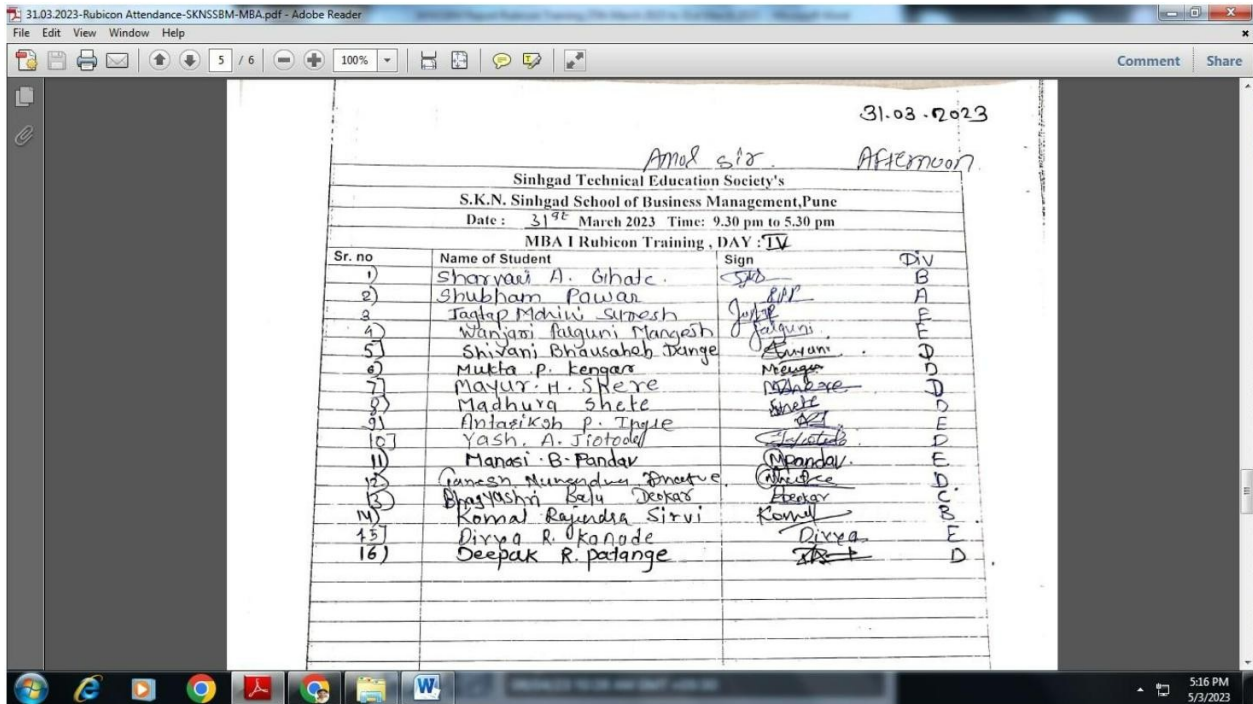 31.03.2023-Rubicon Attendance-SKNSSBM-MBA.pdf - Adobe Reader
File Edit View Window Help
5 / 6 100% Comment Share
31.03.2023
Amol sir. Afternoon
Sinhgad Technical Education Society's
S.K.N. Sinhgad School of Business Management,Pune
Date : 31st March 2023 Time: 9.30 pm to 5.30 pm
MBA I Rubicon Training , DAY : IV
Sr. no Name of Student Sign Div
1) Sharvari A. Ghate. B
2) Shubham Pawar A
3 Jagtap Mohini Suresh E
4) Wanjari falguni Mangesh falguni E
5] Shivani Bhausaheb Dange D
6) Mukta P. Kengar D
7] Mayur. H. Shere D
8) Madhura Shete Shete D
9) Antariksh P. Ingle E
10] Yash. A. D
11) Manasi B. Pandav MPandav. E
12) Ganesh D.
13) Bhagyashri Balu Deokar Deokar C.
14) Komal Rajendra Sirvi Komal B
15] Divya R. Kanade Divya E
16) Deepak R. patange D
5:16 PM
5/3/2023